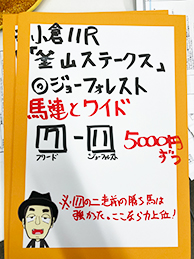 小倉11R
「釜山ステークス」
◎ジョーフォレスト
馬連とワイド
7-11 5000円
ずつ
フリード ジョーフォレスト
※11の二走前の勝ち馬は
強かった。ここなら力上位!